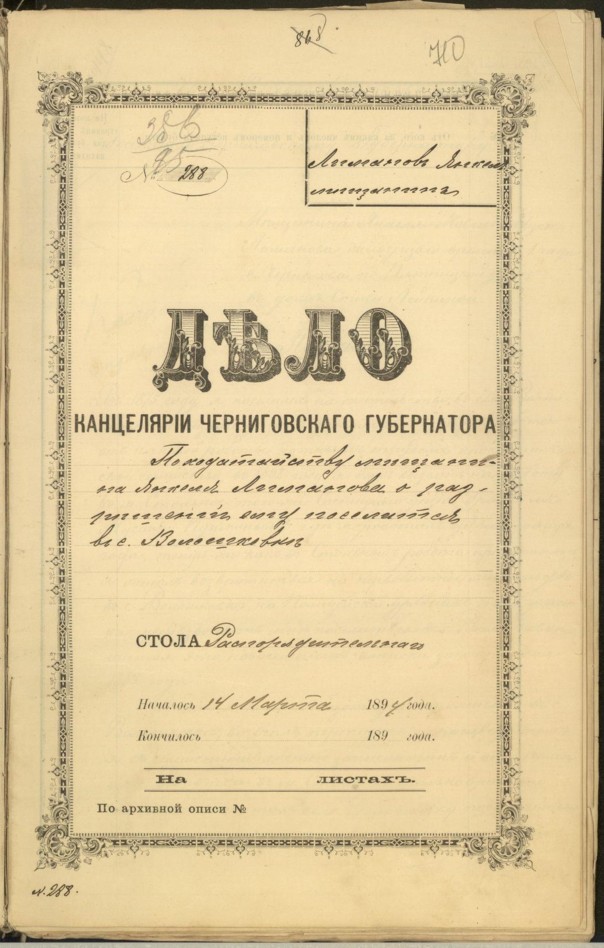 710
№ 288
Лиманова Янкеля
мѣщанина
ДѢЛО
КАНЦЕЛЯРІИ ЧЕРНИГОВСКАГО ГУБЕРНАТОРА
По ходатайству мѣщани-
на Янкеля Лиманова о раз-
рѣшеніи ему поселится
въ с. Волошковкѣ
СТОЛА Распорядительнаго
Началось 14 Марта 1894 года.
Кончилось 189 года.
На листахъ.
По архивной описи №
N. 288.